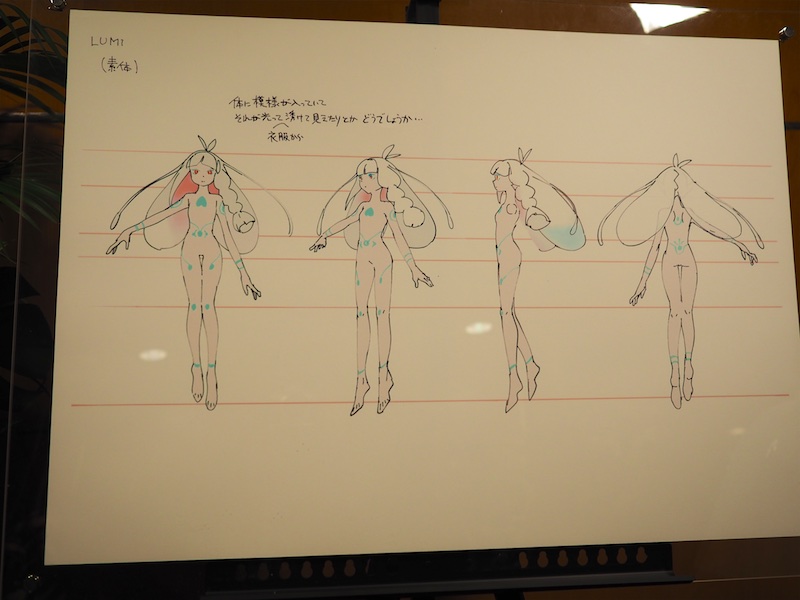 LUMI
(素体)
体に模様が入っていて
それが光って透けて見えたりとか どうでしょうか…
衣服から